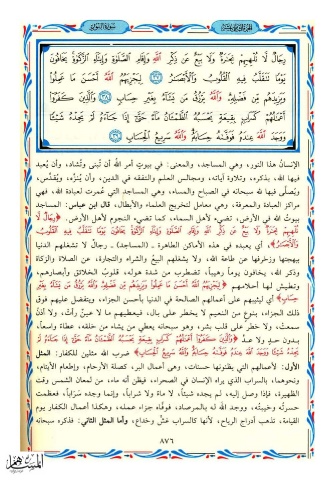 سورة النور
رِجَالٌ لَّا تُلْهِيهِمْ تِجَارَةٌ وَلَا بَيْعٌ عَن ذِكْرِ اللَّهِ وَإِقَامِ الصَّلَاةِ وَإِيتَاءِ الزَّكَاةِ يَخَافُونَ
يَوْمًا تَتَقَلَّبُ فِيهِ الْقُلُوبُ وَالْأَبْصَارُ ﴿٣٧﴾ لِيَجْزِيَهُمُ اللَّهُ أَحْسَنَ مَا عَمِلُوا
وَيَزِيدَهُم مِّن فَضْلِهِ وَاللَّهُ يَرْزُقُ مَن يَشَاءُ بِغَيْرِ حِسَابٍ ﴿٣٨﴾ وَالَّذِينَ كَفَرُوا
أَعْمَالُهُمْ كَسَرَابٍ بِقِيعَةٍ يَحْسَبُهُ الظَّمْآنُ مَاءً حَتَّى إِذَا جَاءَهُ لَمْ يَجِدْهُ شَيْئًا
وَوَجَدَ اللَّهَ عِندَهُ فَوَفَّاهُ حِسَابَهُ وَاللَّهُ سَرِيعُ الْحِسَابِ ﴿٣٩﴾
الإنسانُ هذا النور، وهي المساجد، والمعنى: في بيوتٍ أمر اللهُ أن تُبنى وتُشاد، وأن يُعبد
فيها الله، بذكره، وتلاوة آياته، ومجالس العلم والتفقه في الدين، وأن يُنزَّه، ويُقدَّس،
ويصلَّى فيها لله سبحانه في الصباح والمساء، وهي المساجد التي عُمرت لعبادة الله، فهي
مراكز العبادة والمعرفة، وهي معامل لتخريج العلماء والأبطال، قال ابن عباس: المساجد
بيوتُ الله في الأرض، تضيء لأهل السماء، كما تضيء النجوم لأهل الأرض. ﴿رِجَالٌ لَّا
تُلْهِيهِمْ تِجَارَةٌ وَلَا بَيْعٌ عَن ذِكْرِ اللَّهِ وَإِقَامِ الصَّلَاةِ وَإِيتَاءِ الزَّكَاةِ يَخَافُونَ يَوْمًا تَتَقَلَّبُ فِيهِ الْقُلُوبُ
وَالْأَبْصَارُ﴾ أي يعبده في هذه الأماكن الطاهرة ـ (المساجد) ـ رجالٌ لا تشغلهم الدنيا
بهجتها وزخرفها عن طاعة الله، ولا يشغلهم البيعُ والشراء والتجارة، عن الصلاة والزكاة
وذكر الله، يخافون يوماً رهيباً، تضطرب من شدة هوله، قلوبُ الخلائق وأبصارهم،
وتطيش لها أحلامهم ﴿لِيَجْزِيَهُمُ اللَّهُ أَحْسَنَ مَا عَمِلُوا وَيَزِيدَهُم مِّن فَضْلِهِ وَاللَّهُ يَرْزُقُ مَن يَشَاءُ بِغَيْرِ
حِسَابٍ﴾ أي ليثيبهم على أعمالهم الصالحة في الدنيا بأحسن الجزاء، ويتفضل عليهم فوق
ذلك الجزاء، بنوعٍ من النعيم لا يخطر على بال، فيعطيهم ما لا عينٌ رأت، ولا أذنٌ
سمعت، ولا خطر على قلب بشر، وهو سبحانه يعطي من يشاء من خلقه، عطاءً واسعاً،
بدون حدٍ ولا عدٍّ ﴿وَالَّذِينَ كَفَرُوا أَعْمَالُهُمْ كَسَرَابٍ بِقِيعَةٍ يَحْسَبُهُ الظَّمْآنُ مَاءً حَتَّى إِذَا جَاءَهُ لَمْ
يَجِدْهُ شَيْئًا وَوَجَدَ اللَّهَ عِندَهُ فَوَفَّاهُ حِسَابَهُ وَاللَّهُ سَرِيعُ الْحِسَابِ﴾ ضرب الله مثلين للكفار: المثل
الأول: لأعمالهم التي يظنونها حسنات، وهي أعمال البر، كصلة الأرحام، وإطعام الأيتام،
ونحوهما، بالسراب الذي يراه الإنسان في الصحراء، فيظن أنه ماء، من لمعان الشمس وقت
الظهيرة، فإذا وصل إليه، لم يجده شيئاً، لا ماءً ولا شراباً، وإنما وجده سَرَاباً، فعظمت
حسرته وخيبته، ووجد الله له بالمرصاد، فوفَّاه جزاء عمله، وهكذا أعمال الكفار يوم
القيامة، تذهب أدراج الرياح، لأنها كالسراب غشٌ وخداع، وأما المثل الثاني: فذكره سبحانه
٨٧٦